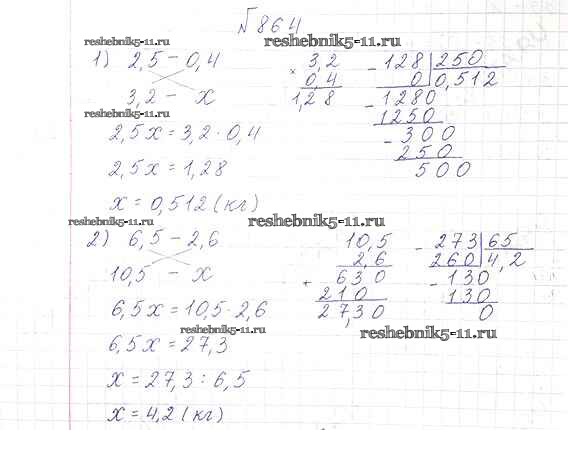 №864
reshebnik5-11.ru
reshebnik5-11.ru
1) 2,5 – 0,4
3,2 – x
reshebnik5-11.ru
2,5x = 3,2 · 0,4
2,5x = 1,28
x = 0,512 (кг)
× 3,2
0,4
1,28
- 128 | 250
0 | 0,512
- 1280
1250
- 300
250
500
reshebnik5-11.ru
reshebnik5-11.ru
2) 6,5 – 2,6
10,5 – x
6,5x = 10,5 · 2,6
reshebnik5-11.ru
6,5x = 27,3
x = 27,3 : 6,5
x = 4,2 (кг)
10,5
2,6
+ 630
210
27,30
- 273 | 65
260 | 4,2
- 130
130
0
reshebnik5-11.ru